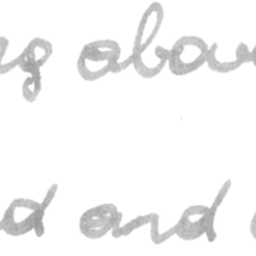 g abou
d and